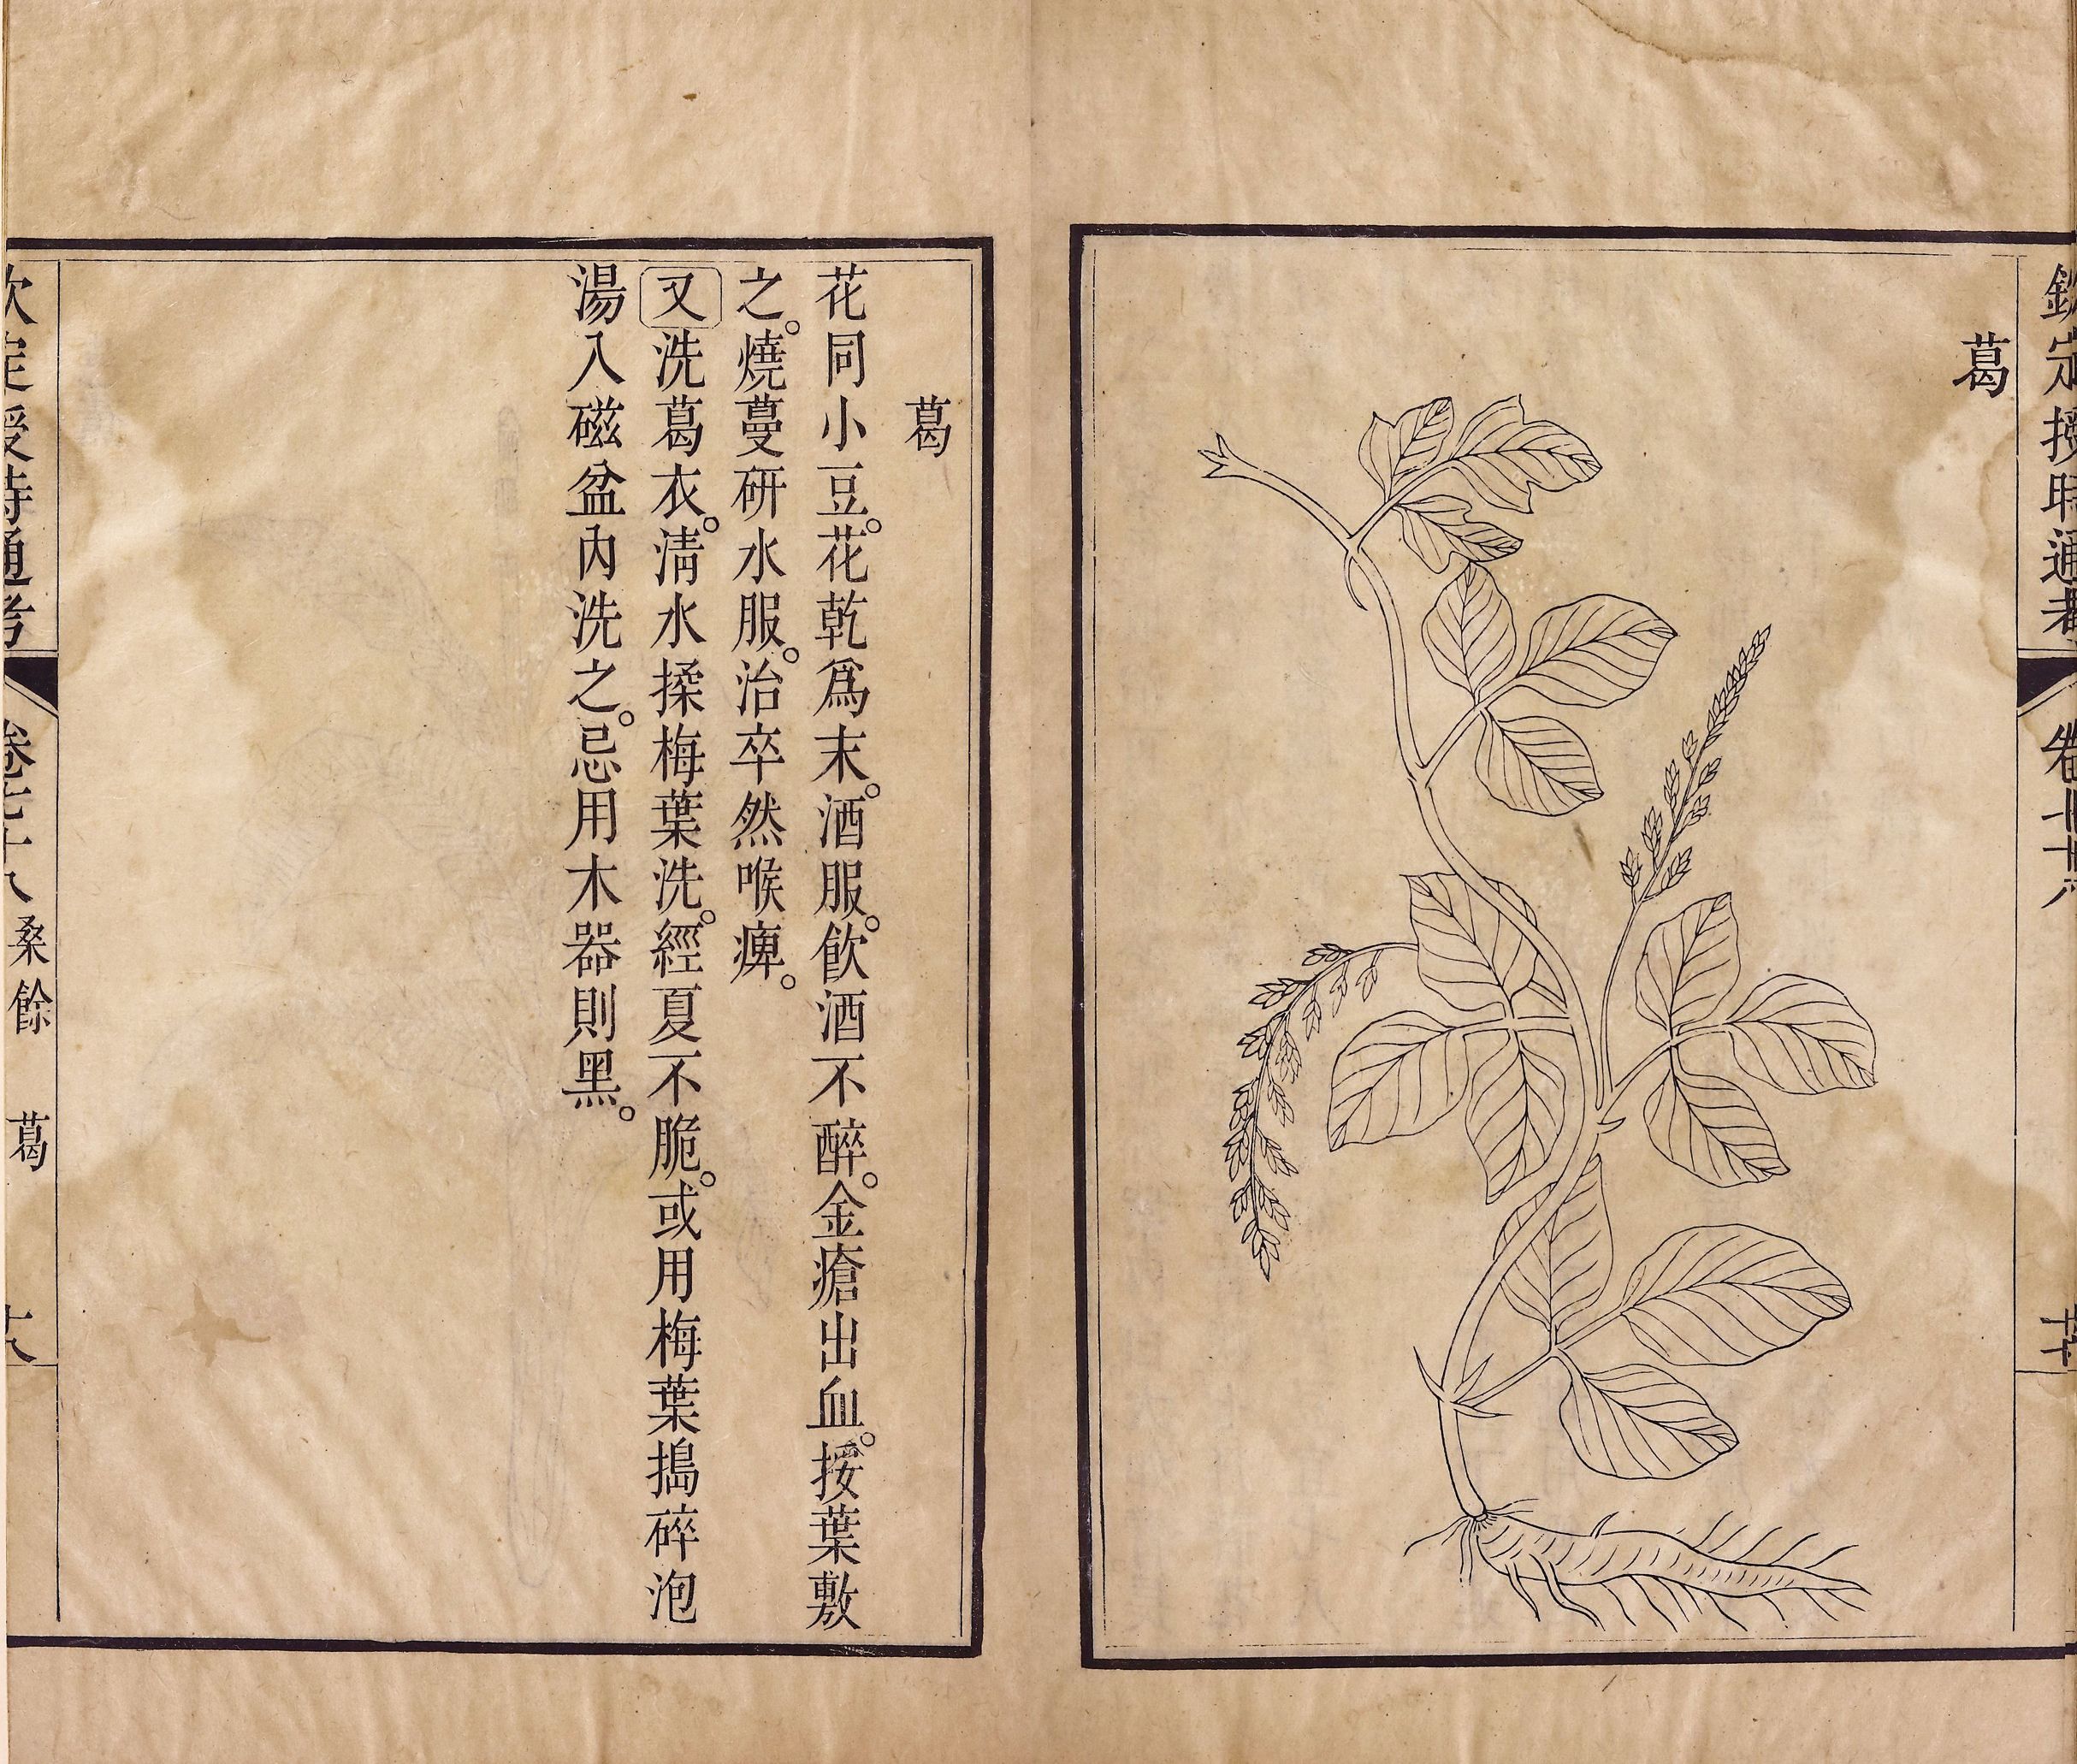 欽定授時通考
葛
葛
花同小豆。花乾爲末。酒服。飮酒不醉。金瘡出血。挼葉敷
之。燒蔓研水服。治卒然喉痺。
又洗葛衣。淸水揉梅葉洗。經夏不脆。或用梅葉搗碎泡
湯入磁盆內洗之。忌用木器則黑。
欽定授時通考
卷七十八 桑餘 葛